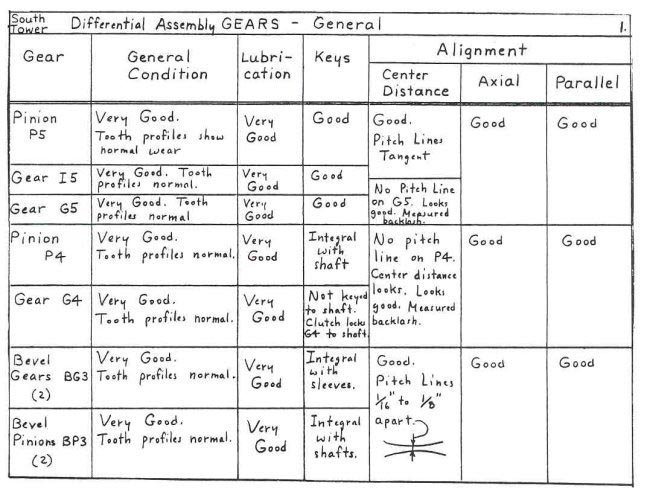 South Tower Differential Assembly GEARS - General 1.
Gear
General
Condition
Lubri-
cation
Keys
Alignment
Center
Distance
Axial
Parallel
Pinion
P5
Very Good.
Tooth profiles show
normal wear
Very
Good
Good
Good.
Pitch Lines
Tangent
Good
Good
Gear I5
Very Good. Tooth
profiles normal.
Very
Good
Good
Gear G5
Very Good. Tooth
profiles normal
Very
Good
Good
No Pitch Line
on G5. Looks
good. Measured
backlash.
Pinion
P4
Very Good.
Tooth profiles normal.
Very
Good
Integral
with
shaft
No pitch
line on P4.
Center distance
looks. Looks
good. Measured
backlash.
Good
Good
Gear G4
Very Good.
Tooth profiles normal.
Very
Good
Not keyed
to shaft.
Clutch locks
G4 to shaft.
Bevel
Gears BG3
(2)
Very Good.
Tooth profiles normal.
Very
Good
Integral
with
sleeves.
Good.
Pitch Lines
1/16" to 1/8"
apart.
Good
Good
Bevel
Pinions BP3
(2)
Very Good.
Tooth profiles normal.
Very
Good
Integral
with
shafts.